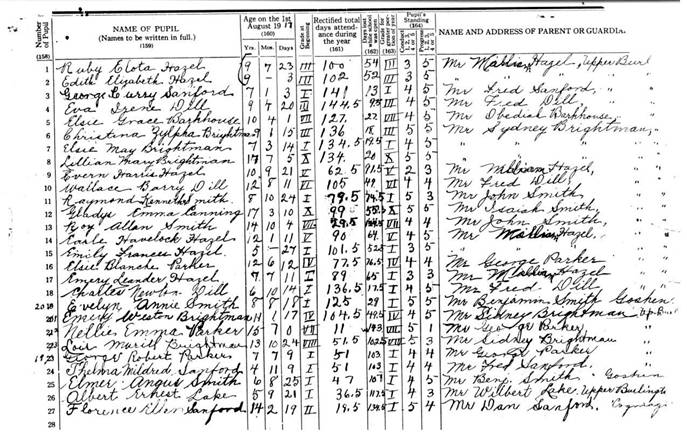 Number of Pupil (158) NAME OF PUPIL (Names to be written in full.) (159) Age on the 1st August 19 17 (160) Yrs. Mos. Days Rectified total days attendance during the year (161) (162) (163) Pupil's Standing (164) NAME AND ADDRESS OF PARENT OR GUARDIA
1 Ruby Clota Hazel 9 7 23 III 100 54 III 3 5 Mr Hazel, Upper Burl
2 Edith Elizabeth Hazel 9 - 3 III 102 52 III 3 5 " "
3 George Lowry Sanford 7 1 3 I 141 13 I 4 5 Mr Fred Sanford, "
4 Eva Irene Dill 9 7 20 III 144.5 4 5 Mr Fred Dill, "
5 Elsie Grace Barkhouse 10 4 1 127 4 5 Mr Obediah Barkhouse, "
6 Christina Zylpha Brightman 9 1 15 III 136 18 III 5 5 Mr Sydney Brightman, "
7 Elsie May Brightman 7 3 14 I 134.5 19.5 I 4 5 " "
8 Lillian Mary Brightman 17 7 5 X 134 20 X 5 5 " "
9 Evern Harris Hazel 10 9 21 V 62.5 91.5 V 2 3 Mr Hazel, "
10 Wallace Barry Dill 12 8 11 VI 105 49 VI 4 4 Mr Fred Dill, "
11 Raymond Kenneth Smith 8 10 24 I 79.5 74.5 I 5 3 Mr John Smith "
12 Gladys Emma Lanning 17 3 10 X 99 X 5 5 Mr Isaiah Smith, "
13 Roy Allen Smith 14 10 4 VII 29.5 VII 4 4 Mr John Smith, "
14 Earle Havelock Hazel 12 1 11 V 90 64 V 4 5 Mr Hazel, "
15 Emily Frances Hazel 5 - 27 I 101.5 52.5 I 3 5 "
16 Elsie Blanche Parker 12 6 12 IV 77.5 76.5 IV 4 4 Mr George Parker "
17 Emery Leander Hazel 7 7 11 I 89 65 I 3 3 Mr Hazel "
18 Charles Newton Dill 6 10 14 I 136.5 17.5 I 4 5 Mr Fred Dill "
20 19 Evelyn Annie Smith 8 8 18 I 125 29 I 5 5 Mr Benjamin Smith Goshen
20 Emery Weston Brightman 11 1 17 IV 104.5 49.5 IV 4 5 Mr Sidney Brightman
21 Nellie Emma Parker 15 7 0 VII 11 143 VII 5 1 Mr George Parker "
22 Brightman 13 10 24 VIII 51.5 102.5 VIII 5 3 Mr Sidney Brightman "
23 George Robert Parker 7 7 9 I 51 103 I 4 4 Mr George Parker "
24 Thelma Mildred Sanford 4 11 9 I 51 103 I 4 4 Mr Fred Sanford, "
25 Elmer Angus Smith 6 8 25 I 47 107 I 4 5 Mr Benj. Smith Goshen
26 Albert Ernest Lake 5 9 21 I 36.5 117.5 I 4 3 Mr Wilbert Lake, Upper Burlington
27 Florence Ellen Sanford 14 2 19 II 19.5 5 4 Mr Dan Sanford,
28